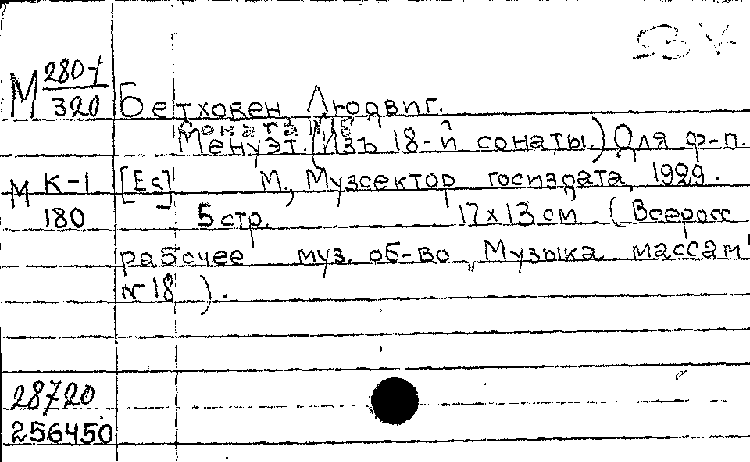 М 280-1/320 Бетховен Людвиг.
Соната №18
Менуэт. (Изъ 18-й сонаты.) Для ф-п.
М К-1/180 [Es] М., Музсектор госиздата, 1929.
5 стр. 17х13 см. (Всеросс.
рабочее муз. об-во „Музыка массам"
№ 18).
28720
256450